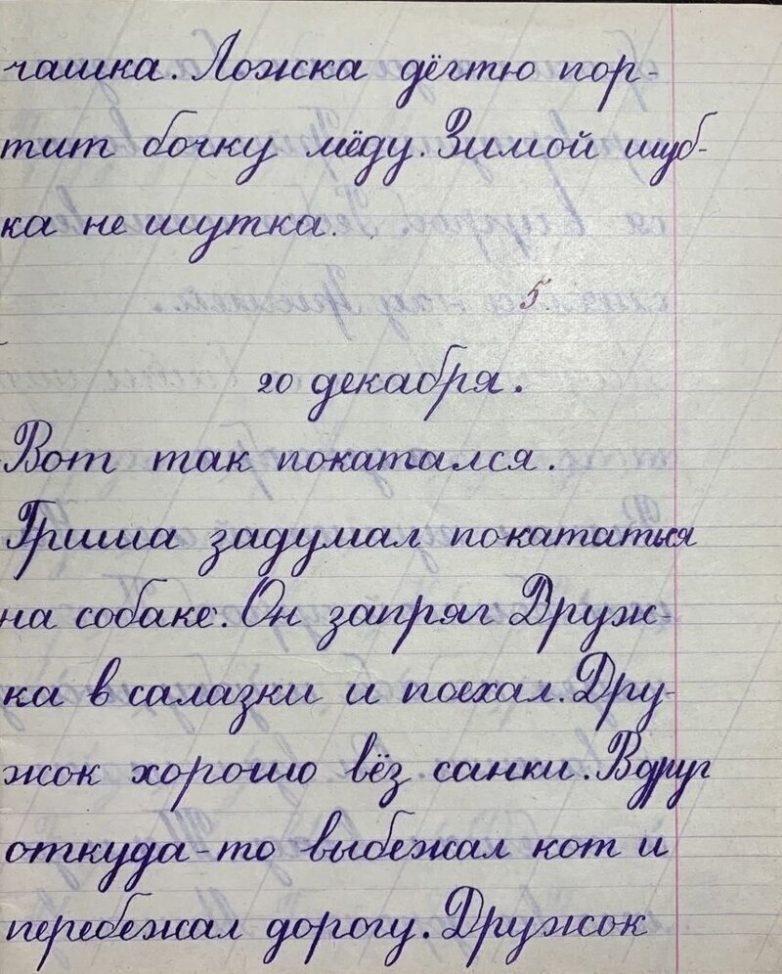 чашка. Ложка дёгтю пор-
тит бочку мёду. Зимой шуб-
ка не шутка.
5.
20 декабря.
Вот так покатался.
Гриша задумал покататься
на собаке. Он запряг Друж-
ка в салазки и поехал. Дру-
жок хорошо вёз санки. Вдруг
откуда-то выбежал кот и
перебежал дорогу. Дружок